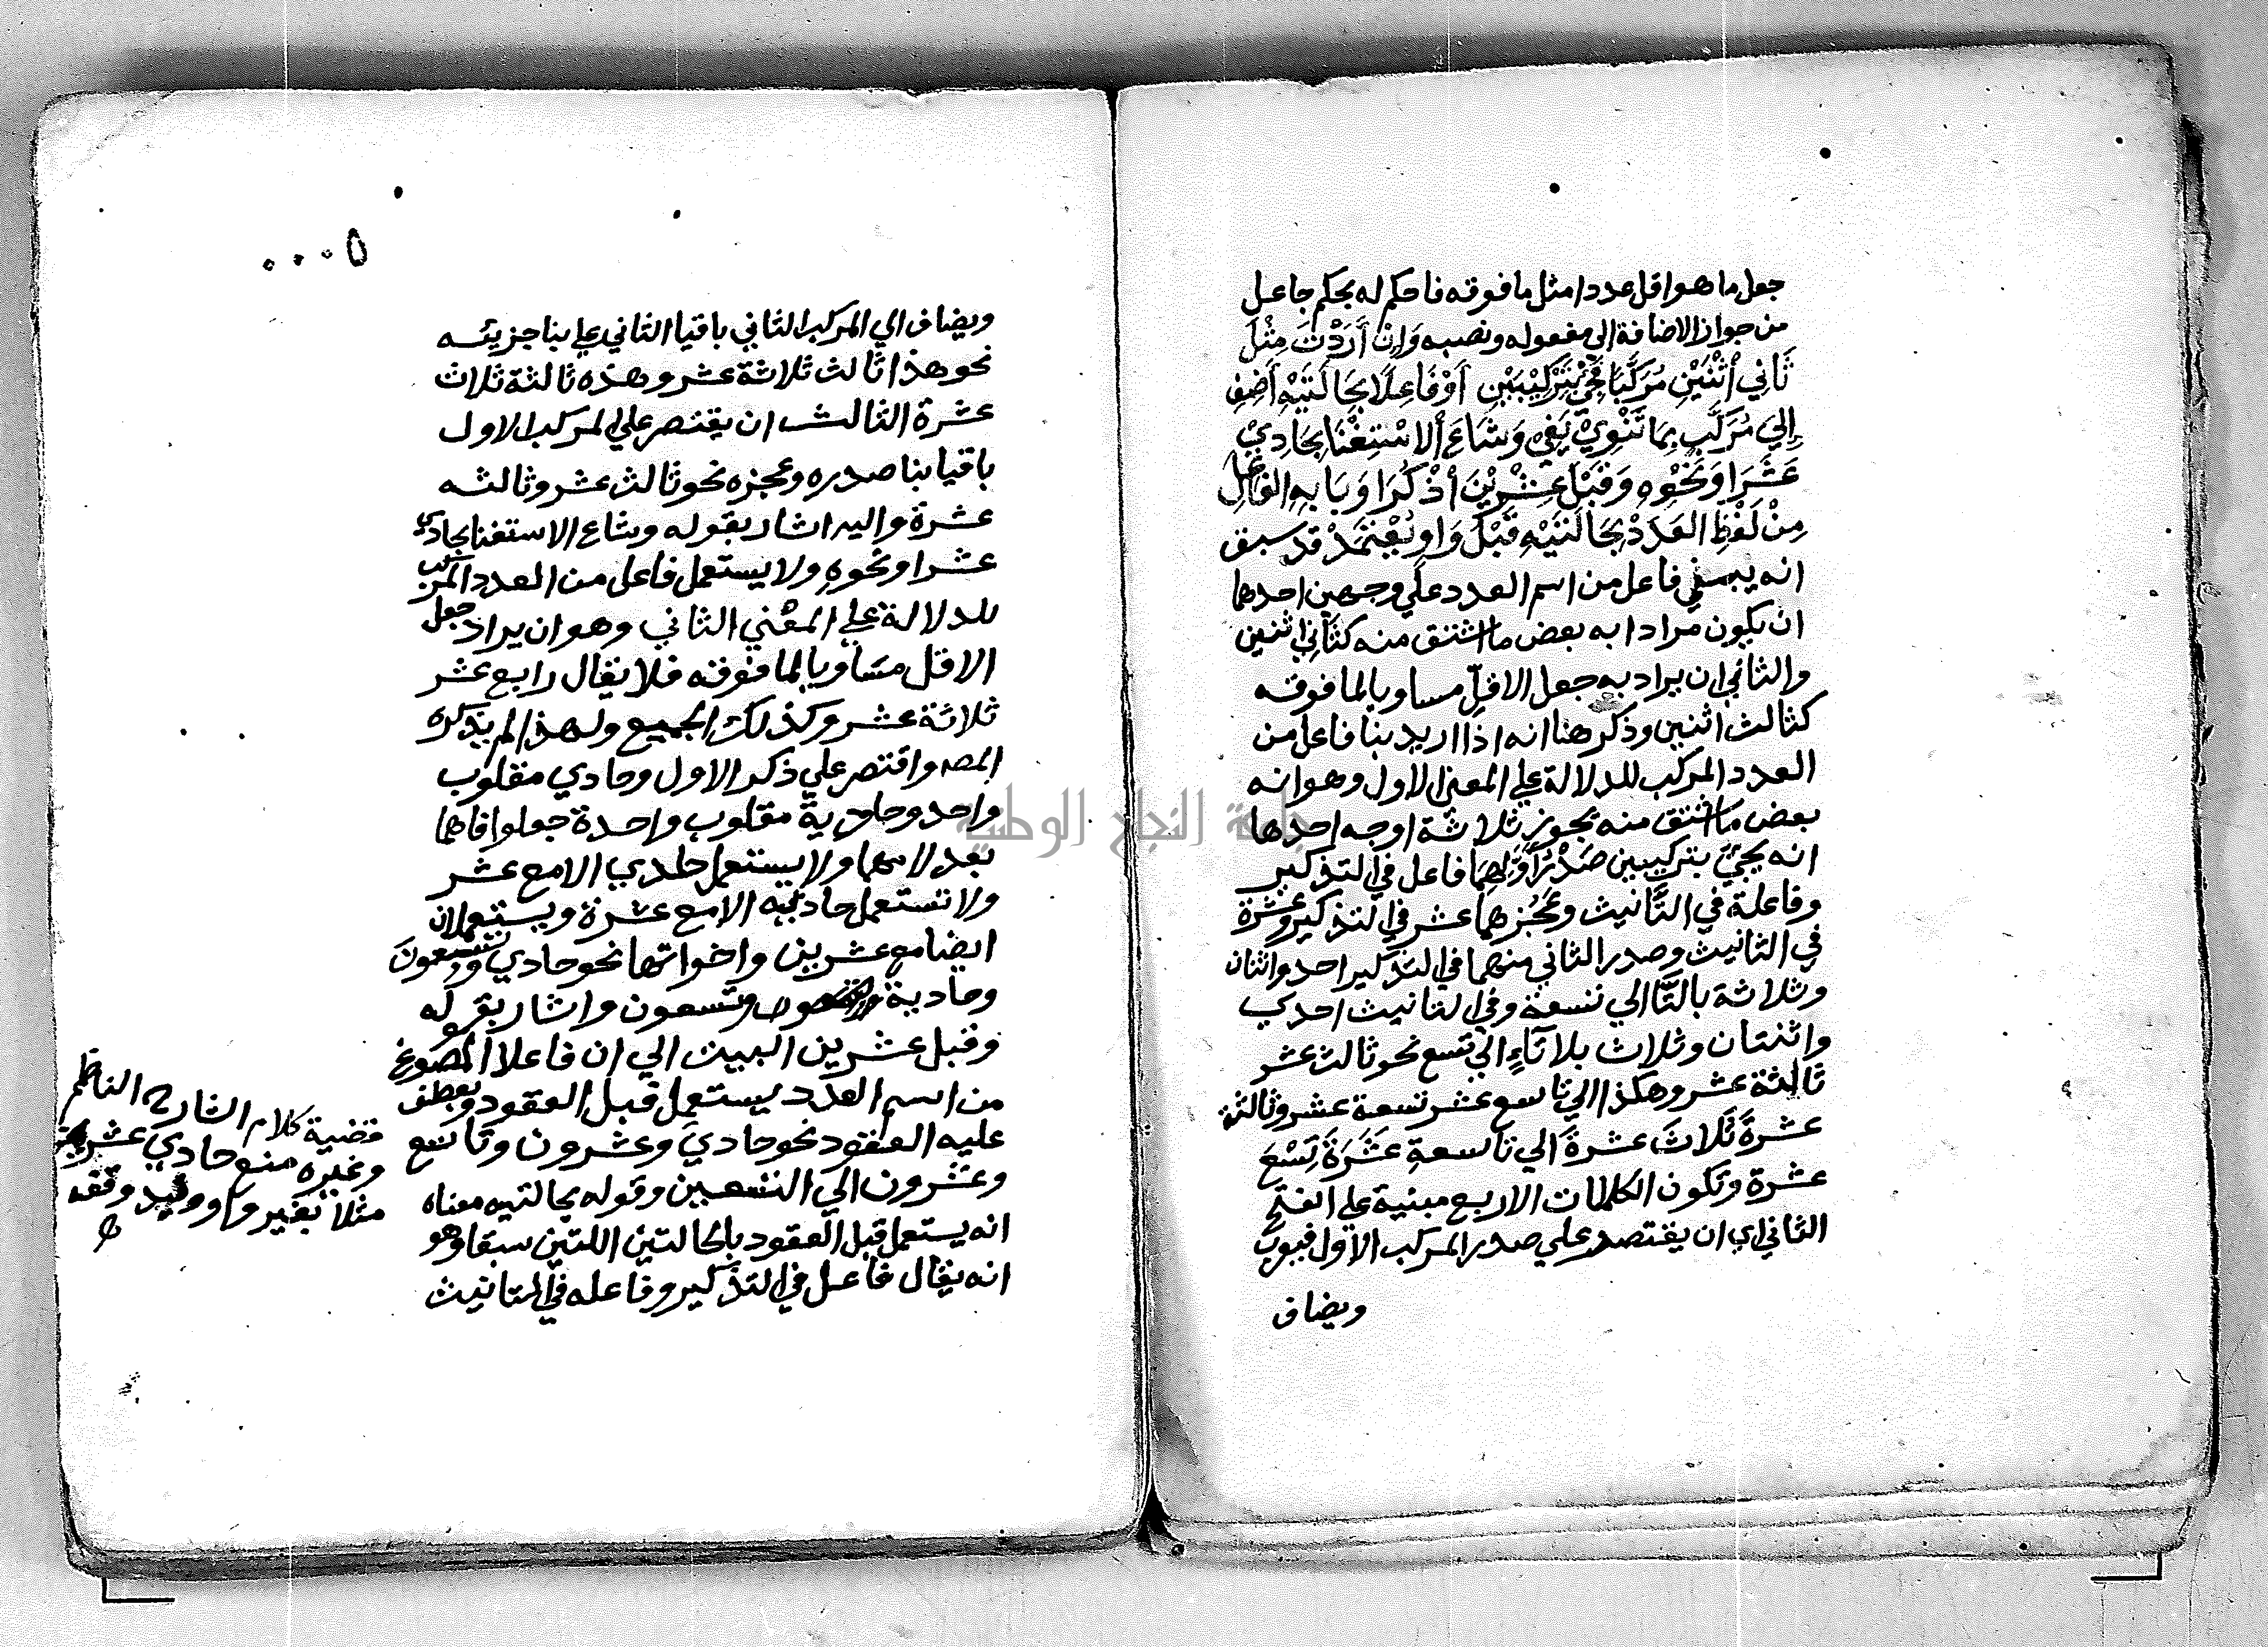 جعل ما هو اقل عددا مثل ما فوقه فاحكم له بحكم جاعل
من جواز الاضافة الي مفعوله ونصبه وَاِنْ أَرَدْتَ مِثْلَ
ثَانِي اثْنَيْنِ مُرَكَّبًا فَجِئْ بِتَرْكِيْبَيْنِ أَوْ فَاعِلًا بِحَالَتَيْهِ أَضِفِ
اِلي مُرَكَّبٍ بِمَا تَنْوِيْ يَفِيْ وَشَاعَ ألاسْتِغْنَا بِحَادِيْ
عَشَرَا وَنَحْوِهِ وَقَبْلَ عِشْرِيْنَ اذْكُرَا وَبَابِهِ الفَاعِلَ
مِنْ لَفْظِ العَدَدْ بِحَالَتَيْهِ قَبْلَ وَاوٍ يُعْتَمَدْ قد سبق
انه يبني فاعل من اسم العدد علي وجهين احدهما
ان يكون مرادا به بعض ما اشتق منه كثاني اثنين
والثاني ان يراد به جعل الاقل مساويا لما فوقه
كثالث اثنين وذكر هنا انه اذا اريد بنا فاعل من
العدد المركب للدلالة علي المعني الاول وهو انه
بعض ما اشتق منه يجوز ثلاثة اوجه احدها
انه يجئ بتركيبين صَدْرُ اَوَّلِهِمَا فاعل في التذكير
وفاعلة في التانيث وعَجُزهما عشر في التذكير وعشرة
في التانيث وصدر الثاني منهما في التذكير احد واثنان
وثلاثة بالتَّا الي تسعة وفي التانيث احدي
واثنتان وثلاث بلا تَاءٍ الي تسع نحو ثالث عشر
ثالثة عشر وهكذا الي تاسع عشر تسعة عشر وثالثة
عشرةَ ثَلاثَ عشرةَ الي تاسعةِ عَشَرَةَ تِسْعَ
عشرة وتكون الكلمات الاربع مبنية علي الفتح
الثاني اي ان يقتصد علي صدر المركب الاول فيعرب
ويضاف
٥٠٠٠
ويضاف الي المركب الثاني باقيا الثاني علي بنا جزيئه
نحو هذا ثالث ثلاثة عشر وهذه ثالثة ثلاث
عشرة الثالث ان يقتصر علي المركب الاول
باقيا بنا صدره وعجزه نحو ثالث عشر وثالثه
عشرة واليه اشار بقوله وشاع الاستغنا بحادي
عشرا ونحوهِ ولا يستعمل فاعل من العدد المركب
للدلالة علي المعْني الثاني وهو ان يراد جعل
الاقل مساويا لما فوقه فلا يقال رابع عشر
ثلاثة عشر وكذلك الجميع ولهذا لم يذكره
المصـ واقتصر علي ذكر الاول وحادي مقلوب
واحد وحادية مقلوب واحدة جعلوا فاهما
بعد لامهما ولا يستعمل حادي الا مع عشر
ولا تستعمل حاديه الا مع عشرة ويستعملان
ايضا مع عشرين واخواتها نحو حادي وتسعون
وحادية وتسعون واشار بقوله
وقبل عشرين البيت الي ان فاعلا المصوغ
من اسم العدد يستعمل قبل العقود ويعطف
عليه العقود نحو حادي وعشرون وتاسع
وعشرون الي التسعين وقوله بحالتيه معناه
انه يستعمل قبل العقود بالحالتين اللتين سبقا وهو
انه يقال فاعل في التذكير وفاعله في التانيث
قضية كلام الشارح الناظم
وغيره منع حادي عشرين
مثلا بغير واو وقفه
جامعة النجاح الوطنية